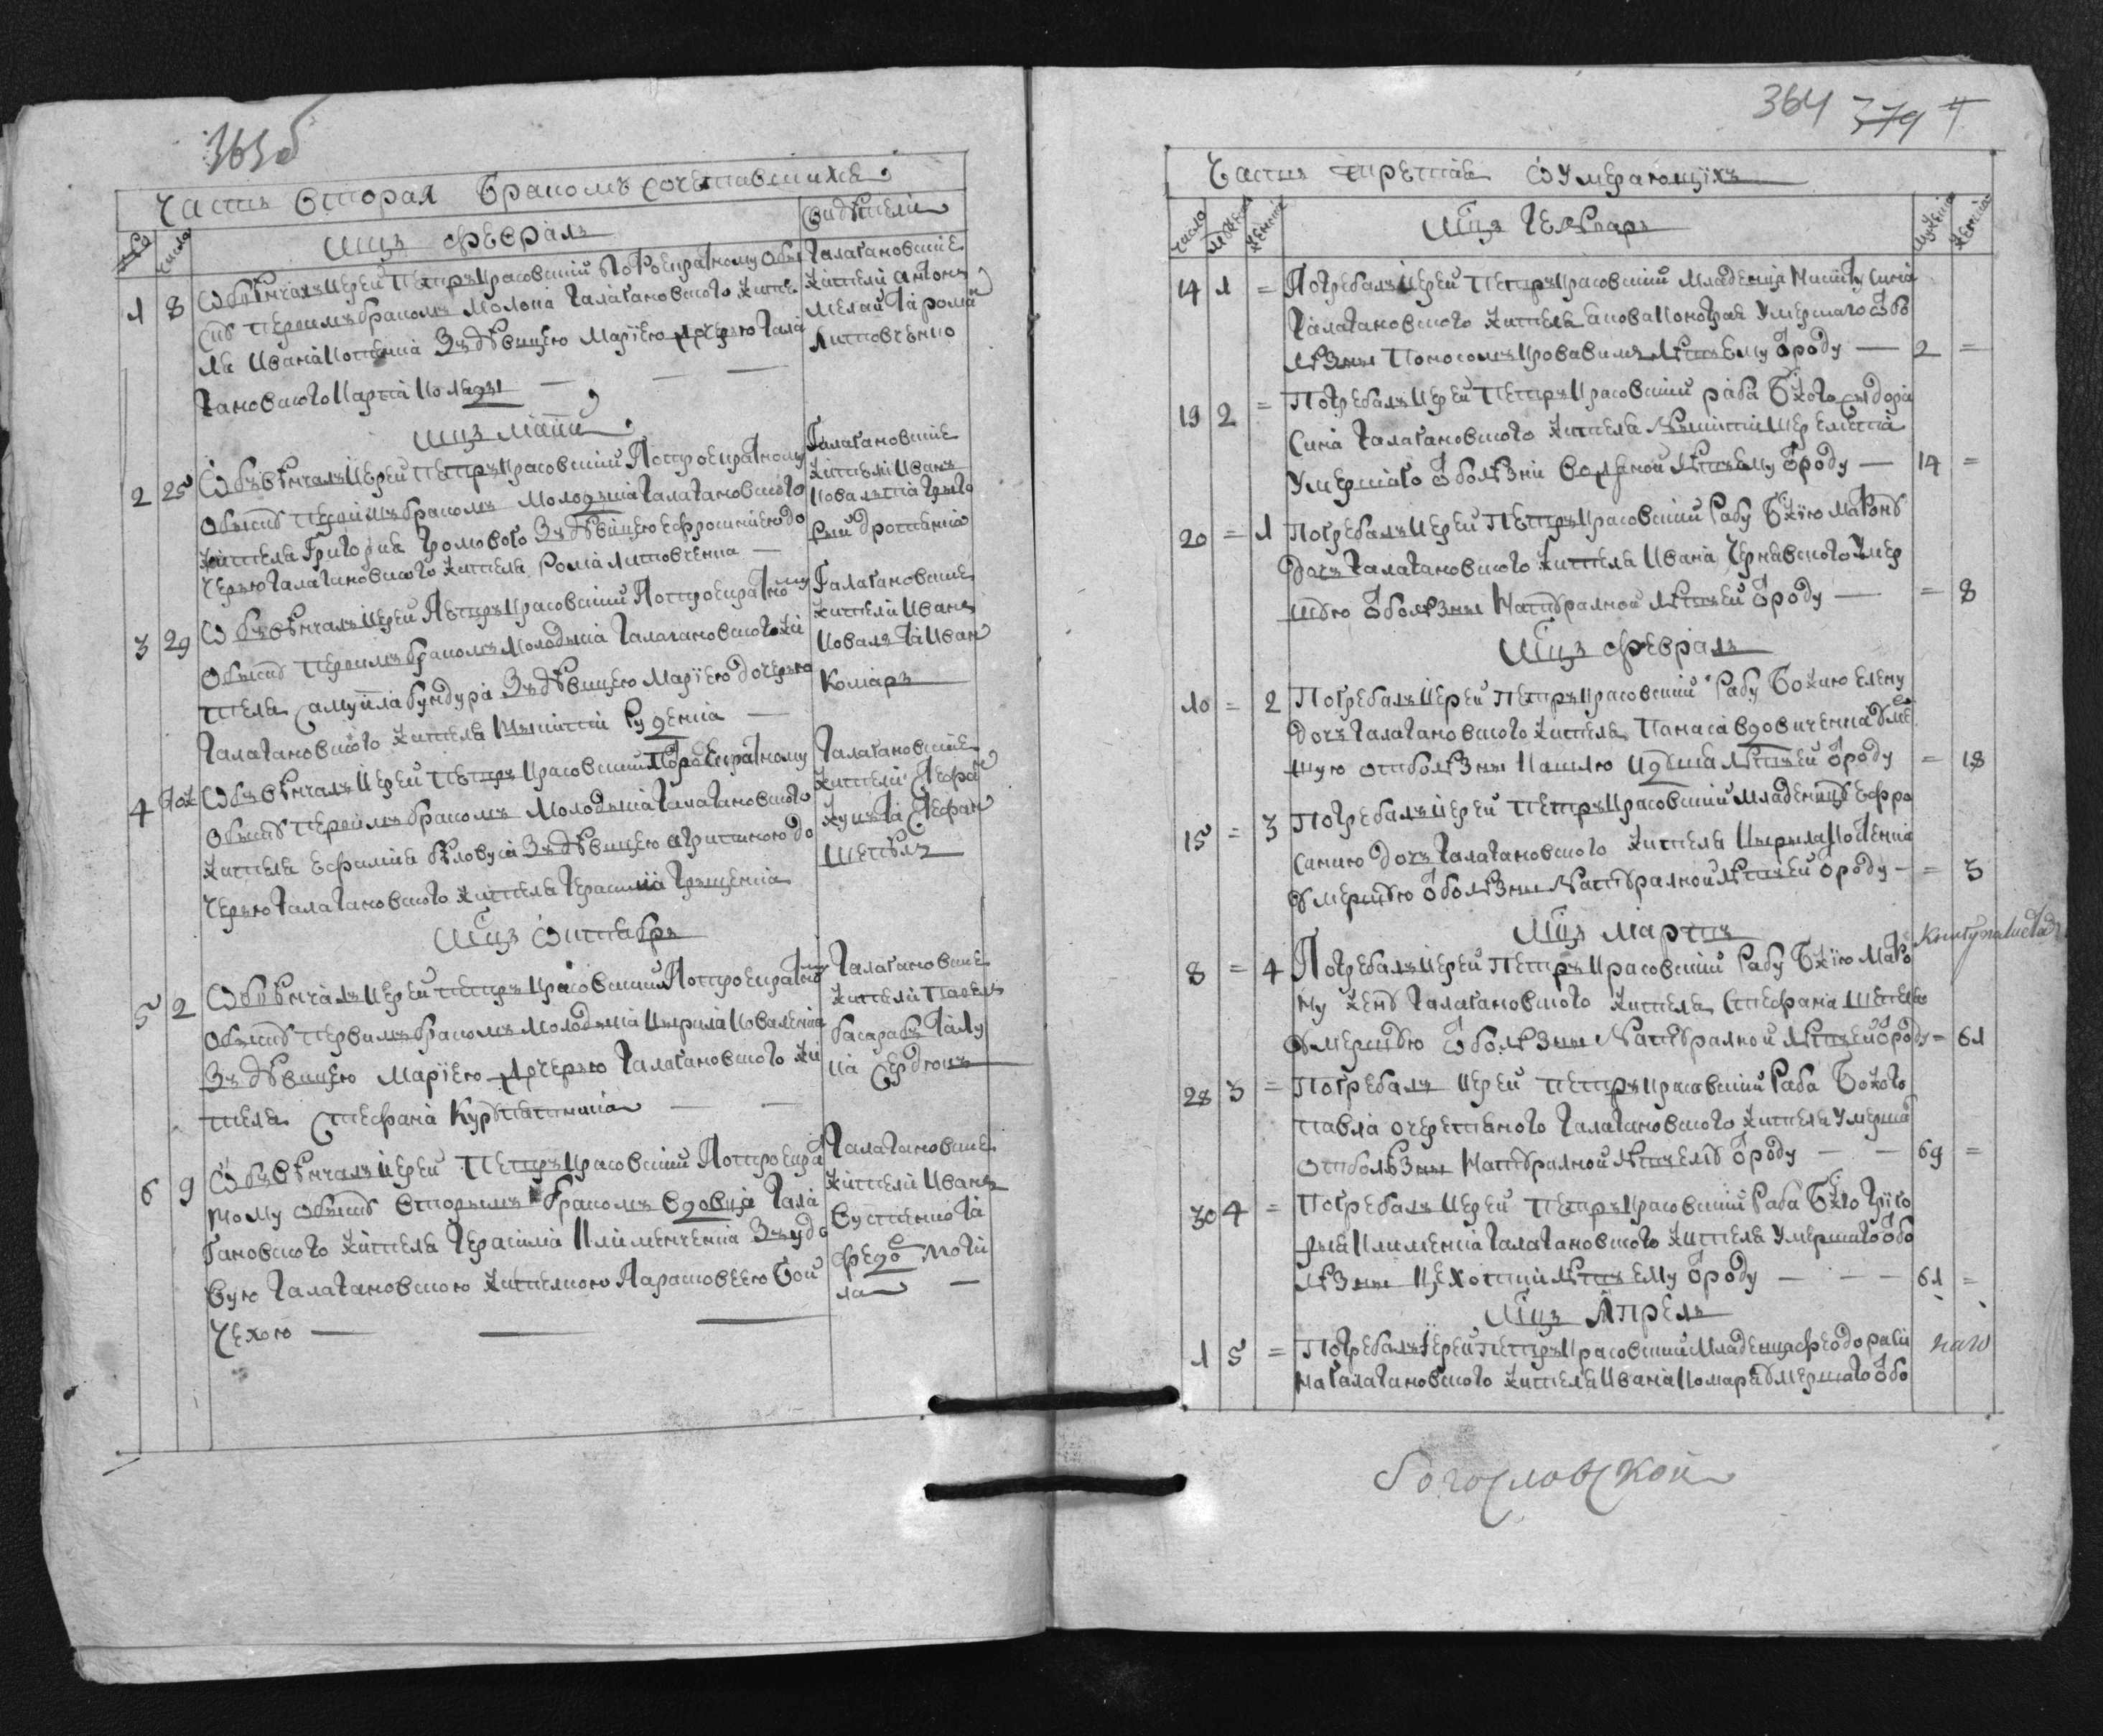 363 об
Часть вторая браком сочетавшихся
число
мцъ февраль
Свидѣтели
1 8 Обвѣнчалъ иерей Петръ Красовский по троекратному обы
ску первимъ бракомъ молодика галагановского жите
ля Ивана Костенка зъ дѣвицею Мариею дочерею гала
гановского Карпа Коляди
Галагановские
жители Антонъ
Мелай та Роман
Литовченко
мцъ май
2 25 Обвѣнчалъ иерей Петръ Красовский по троекратному
обыску первимъ бракомъ молодика галагановского
жителя Григория Громового зъ дѣвицею Ефросиниею до
черею галагановского жителя Рома Литовченка
Галагановские
жители Иванъ
Коваль та Григо
рий
3 29 Обвѣнчалъ иерей Петръ Красовский по троекратному
обыску первимъ бракомъ молодика галагановского жи
теля Самуила Бундура зъ дѣвицею Мариею дочерею
галагановского жителя Никити Руденка
Галагановские
жители Иванъ
Коваль та Иван
Комаръ
4 Обвѣнчалъ иерей Петръ Красовский по троекратному
обыску первимъ бракомъ молодика галагановского
жителя Ефима Бѣловуса зъ дѣвицею Агрипиною до
черею галагановского жителя Герасима Грищенка
Галагановские
жители Стефан
Куц та Стефан
Шепѣль
мцъ октябръ
5 2 Обвѣнчалъ иерей Петръ Красовский по троекратному
обыску первимъ бракомъ молодика Кирила Коваленка
зъ дѣвицею Мариею дочерею галагановского жи
теля Стефана
Галагановские
жители Павелъ
Басарабъ та Лу
ка Сердюкъ
6 9 Обвѣнчалъ иерей Петръ Красовский по троекра
тному обыску вторымъ бракомъ вдовца гала
гановского жителя Герасима Клименченка зъ удо
вую галагановскою жителкою Парасковеею Бой
чехою
Галагановские
жители Иванъ
та
Федо Моги
ла
364 379 4
Часть третая о умерающихъ
число
мцъ генваръ
14 1 = Погребалъ иерей Петръ Красовский младенца Никиту сина
галагановского жителя Якова Кондрая умершаго от бо
лѣзны поносомъ кровавимъ лѣтъ ему от роду — 2 =
19 2 = Погребалъ иерей Петръ Красовский раба Бжого Сидора
сина галагановского жителя Никити Шеремета
умершаго от болѣзни водяной лѣтъ ему от роду — 14 =
20 = 1 Погребалъ иерей Петръ Красовский рабу Бжию
дочъ галагановского жителя Ивана Чернявского умер
шую от болѣзны натуралной лѣтъ ей от роду — = 8
мцъ февраль
10 = 2 Погребалъ иерей Петръ Красовский рабу Божию Елену
дочъ галагановского жителя Панаса Вдовиченка умер
шую от болѣзны кашлю и удыша лѣтъ ей от роду = 18
15 = 3 Погребалъ иерей Петръ Красовский младеницу Ефро
синию дочъ галагановского жителя Кирыла Костенка
умершую от болѣзны натуралной лѣтъ ей от роду - = 3
мцъ мартъ
8 = 4 Погребалъ иерей Петръ Красовский рабу Бжию
жену галагановского жителя Стефана Шепеля
умершую от болѣзны натуралной лѣтъ ей от роду = 61
28 3 = Погребалъ иерей Петръ Красовский раба Божого
Павла Очеретяного галагановского жителя умерша
от болѣзны натуралной лѣтъ ему от роду — — 69 =
30 4 = Погребалъ иерей Петръ Красовский раба Бжго Григо
рыя Клименка галагановского жителя умершаго от бо
лѣзны лѣтъ ему от роду — — — 61 =
мцъ апрель
1 5 = Погребалъ иерей Петръ Красовский младенца Феодора си
на галагановского жителя Ивана Комара умершаго от бо
богословской